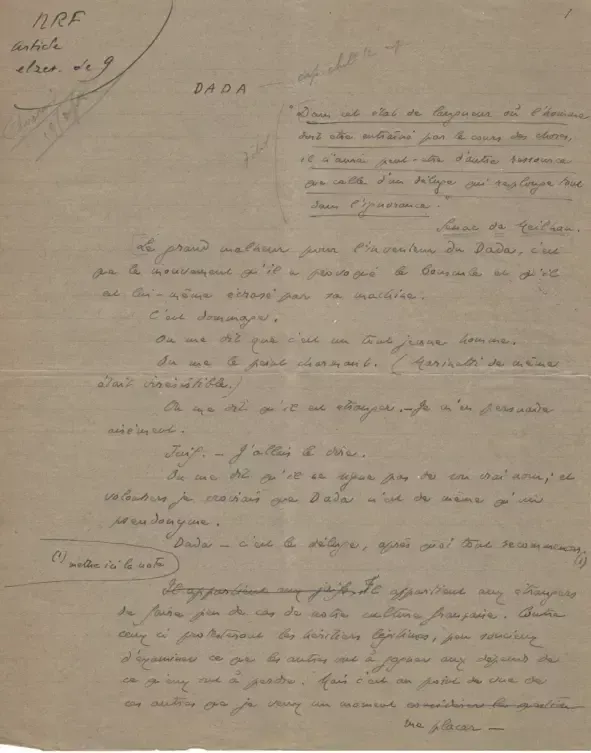 NRF
article
elzev. de 9
1
DADA
"Dans cet état de langueur où l'homme
doit être entraîné par le cours des choses,
il n'aura peut-être d'autre ressource
que celle d'un déluge qui replonge tout
dans l'ignorance."
Senac de Meilhan.
Le grand malheur pour l'inventeur du Dada, c'est
que le mouvement qu'il a provoqué le bouscule et qu'il
est lui-même écrasé par sa machine.
C'est dommage.
On me dit que c'est un tout jeune homme.
On me le peint charmant. (Marinetti de même
était irrésistible.)
On me dit qu'il est étranger. — Je m'en persuade
aisément.
Juif. — J'allais le dire.
On me dit qu'il ne signe pas de son vrai nom; et
volontiers je croirais que Dada n'est de même qu'un
pseudonyme.
Dada — c'est le déluge, après quoi tout recommence. (1)
(1) mettre ici la note
Il appartient aux juifs. Il appartient aux étrangers
de faire peu de cas de notre culture française. Contre
ceux ci protesteront les héritiers légitimes, peu soucieux
d'examiner ce que les autres ont à gagner aux dépens de
ce qu'eux ont à perdre. Mais c'est au point de vue de
ces autres que je veux un moment considérer la
me placer —